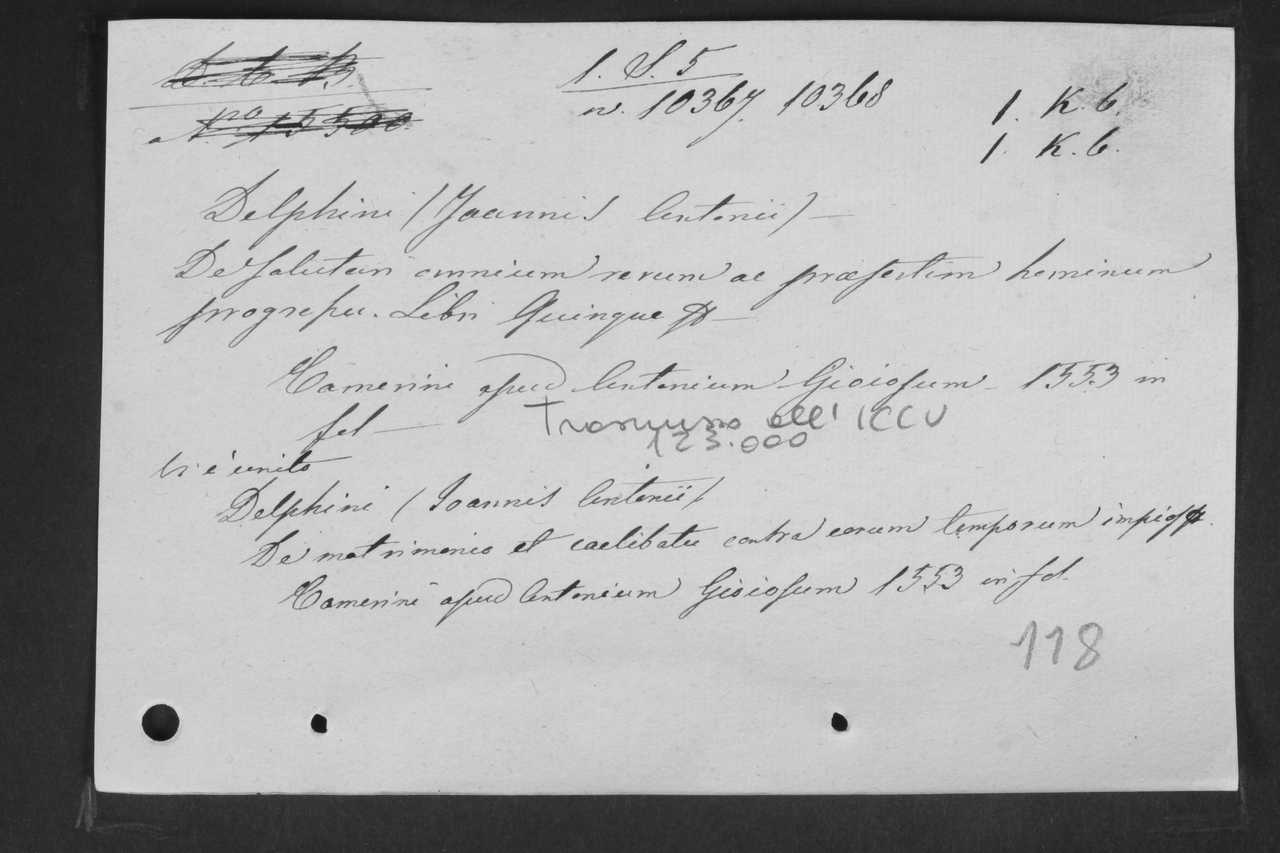 1. S. 5
n. 10367. 10368
1. K. 6.
1. K. 6.
Delphini (Joannis Antonii) —
De salutari omnium rerum ac præsertim hominum
progressu. Libri Quinque &
Camerini apud Antonium Gioiosum 1553 in
fol —
Trasmesso all' ICCU
123.000
Vi è unito
Delphini (Joannis Antonii)
De matrimonio et caelibatu contra eorum temporum impios &.
Camerini apud Antonium Gioiosum 1553 in fol.
118